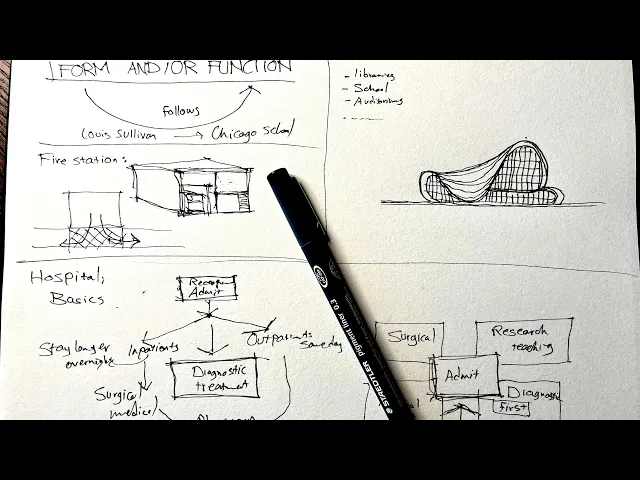 FORM AND/OR FUNCTION
Follows
Louis Sullivan → Chicago School
Fire station:
- libraries
- School
- Auditoriums
Hospital,
Basics
Admit
Stay longer
overnight
Inpatients
Outpatients
same day
Diagnostic
treatment
Surgical
medical
Surgical
Research
teaching
Admit
Diagnostic
first
STAEDTLER pigment liner 0.3